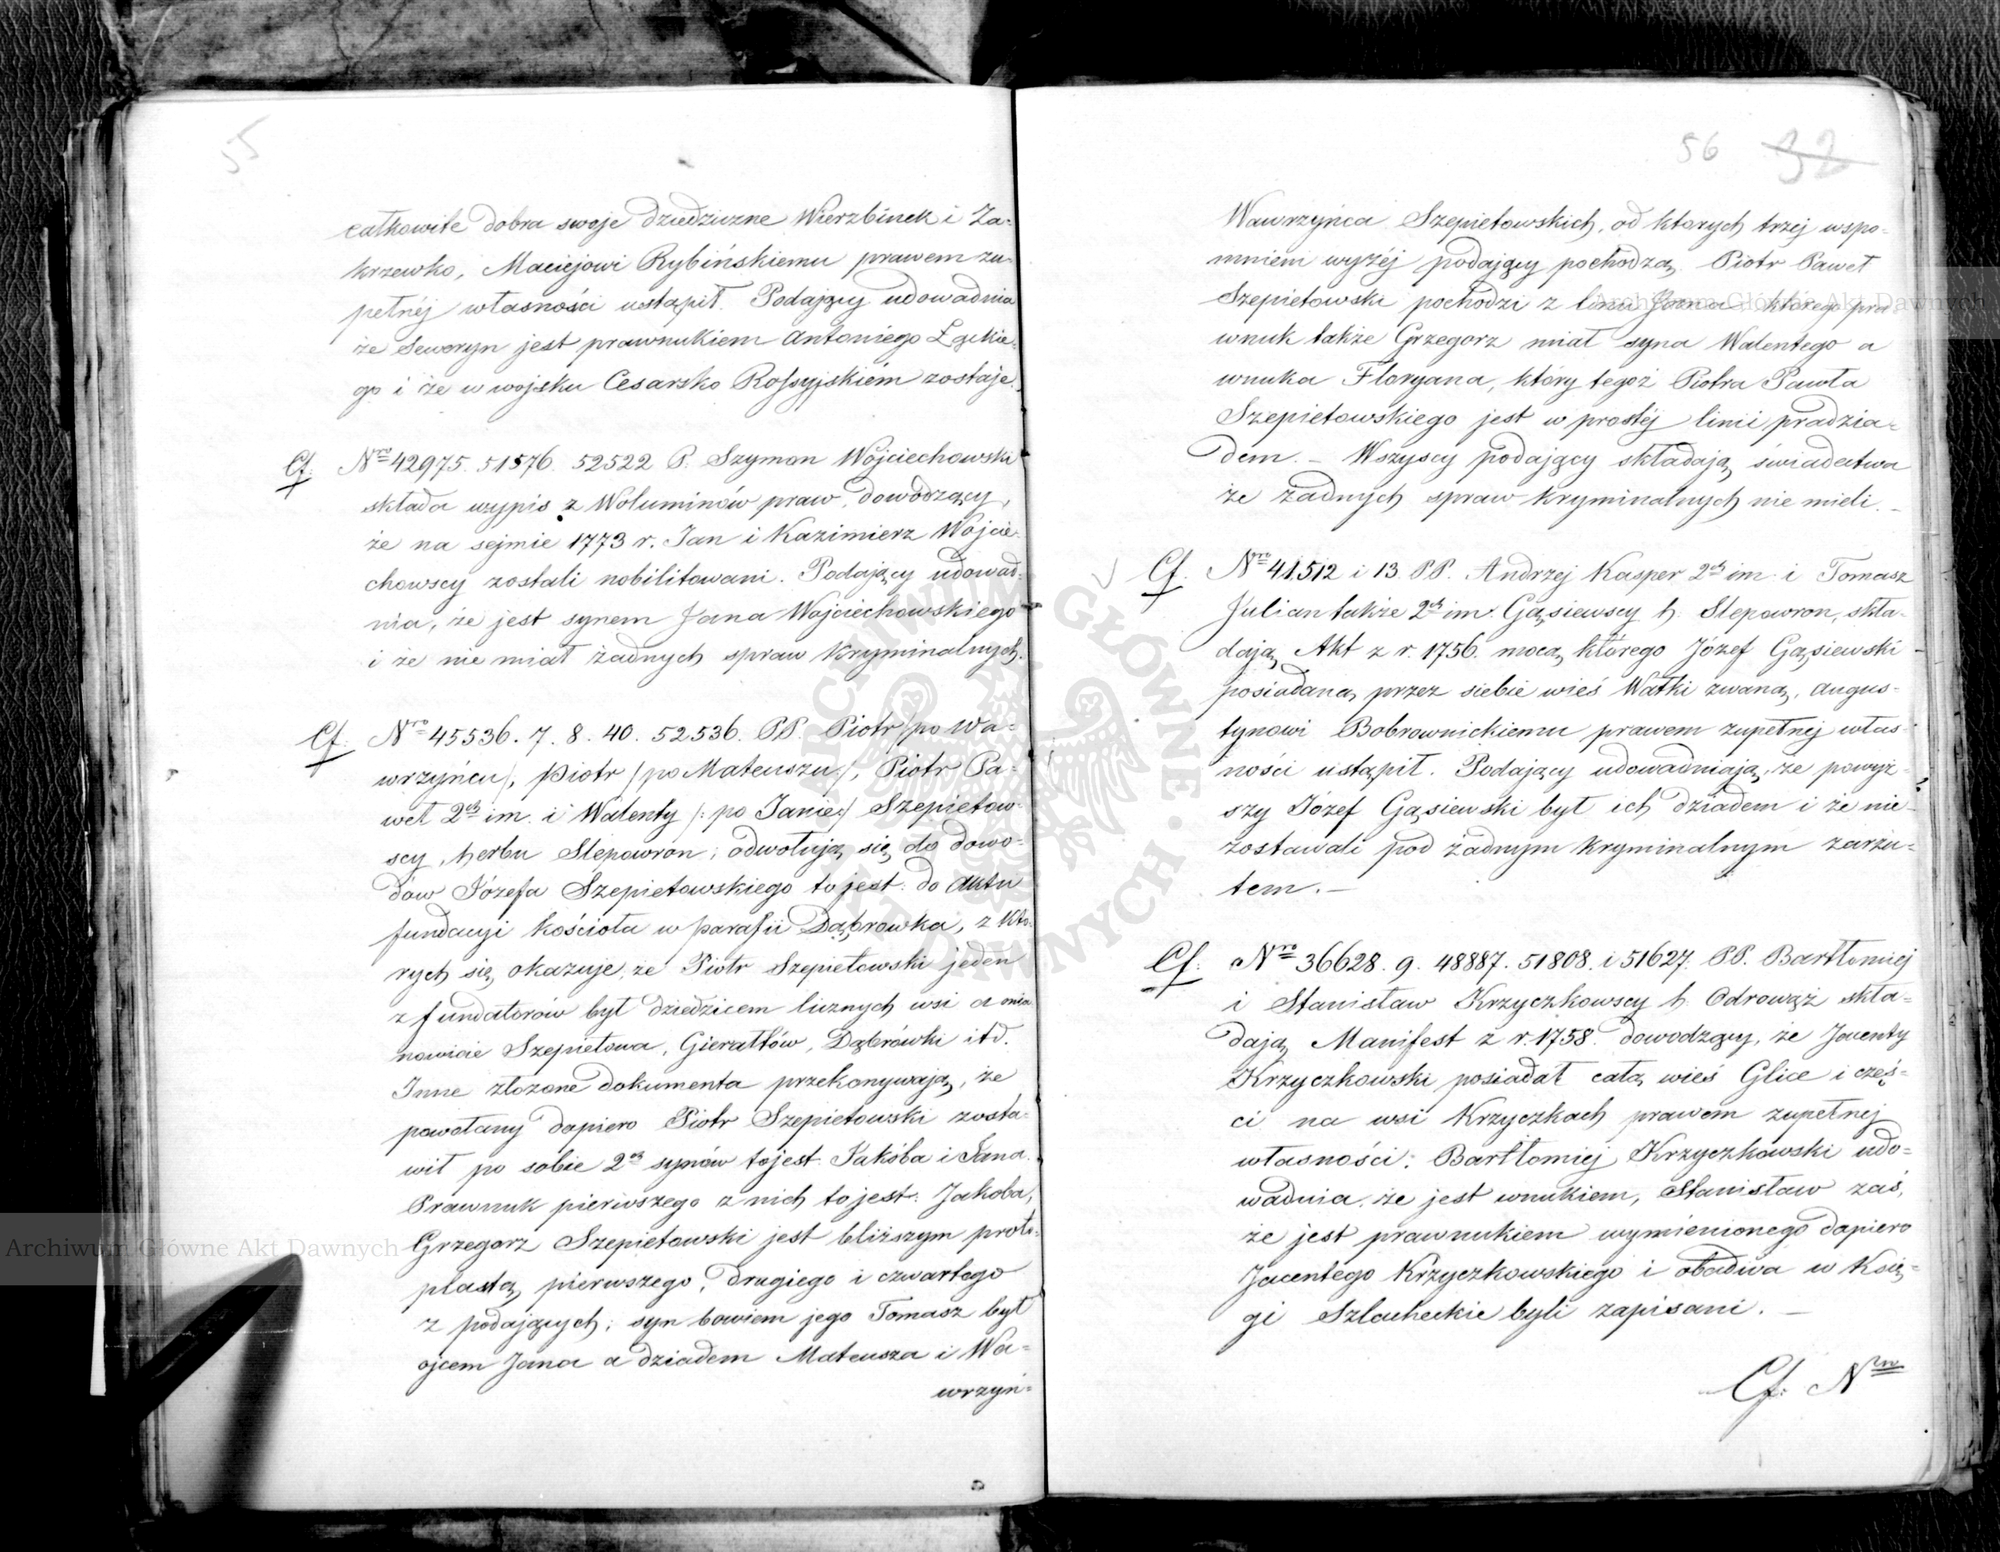 55
całkowite dobra swoje dziedziczne Wierzbinek i Za-
krzewko, Maciejowi Rybińskiemu prawem zu-
pełnéj własności ustąpił. Podający udowadnia
że Seweryn jest prawnukiem Antoniego Łąckie-
go i że w wojsku Cesarsko Rossyjskiém zostaje.
Cf: Nro 42975. 51576. 52522 P. Szymon Wojciechowski
składa wypis z Woluminów praw, dowodzący,
że na sejmie 1773 r. Jan i Kazimierz Wojcie-
chowscy zostali nobilitowani. Podający udowad-
nia, że jest synem Jana Wojciechowskiego
i że nie miał żadnych spraw kryminalnych.
Cf: Nro 45536. 7. 8. 40. 52536. PP. Piotr /po Wa-
wrzyńcu/, Piotr /po Mateuszu/, Piotr Pa-
weł 2ch im. i Walenty /: po Janie:/ Szepietow-
scy, herbu Slepowron; odwołują się do dowo-
dów Józefa Szepietowskiego to jest: do aktu
fundacyi kościoła w parafii Dąbrowka, z któ-
rych się okazuje, że Piotr Szepietowski jeden
z fundatorów był dziedzicem licznych wsi a mia
nowicie Szepietowa, Gierałtów, Dąbrówki itd.
Inne złożone dokumenta przekonywają, że
powołany dopiero Piotr Szepietowski zosta-
wił po sobie 2ch synów to jest: Jakóba i Jana.
Prawnuk pierwszego z nich to jest: Jakóba,
Grzegorz Szepietowski jest bliższym proto-
plastą pierwszego, drugiego i czwartego
z podających; syn bowiem jego Tomasz był
ojcem Jana a dziadem Mateusza i Wa-
wrzyń-
56 32
Wawrzyńca Szepietowskich, od których trzéj wspo-
mnieni wyżéj podający pochodzą. Piotr Paweł
Szepietowski pochodzi z linii Jana, którego pra-
wnuk także Grzegorz miał syna Walentego a
wnuka Floryana, który tegoż Piotra Pawła
Szepietowskiego jest w prostéj linii pradzia-
dem. – Wszyscy podający składają świadectwa
że żadnych spraw kryminalnych nie mieli. –
Cf. Nro 41512 i 13. PP. Andrzej Kasper 2ch im. i Tomasz
Julian także 2ch im. Gąsiewscy h. Slepowron, skła-
dają Akt z r. 1756. mocą którego Józef Gąsiewski
posiadaną przez siebie wieś Watki zwaną, Augus-
tynowi Bobrownickiemu prawem zupełnej włas-
ności ustąpił. Podający udowadniają, że powyż-
szy Józef Gąsiewski był ich dziadem i że nie-
zostawali pod żadnym kryminalnym zarzu-
tem. –
Cf: Nro 36628. 9. 48887. 51808. i 51627. PP. Bartłomiej
i Stanisław Krzyczkowscy h. Odrowąż skła-
dają Manifest z r. 1758. dowodzący, że Jacenty
Krzyczkowski posiadał całą wieś Glice i częś-
ci na wsi Krzyczkach prawem zupełnej
własności; Bartłomiej Krzyczkowski udo-
wadnia, że jest wnukiem, Stanisław zaś,
że jest prawnukiem wymienionego dopiero
Jacentego Krzyczkowskiego i obadwa w Księ-
gi Szlacheckie byli zapisani. –
Cf: Nro
Archiwum Główne Akt Dawnych
Archiwum Główne Akt Dawnych
ARCHIWUM GŁÓWNE AKT DAWNYCH